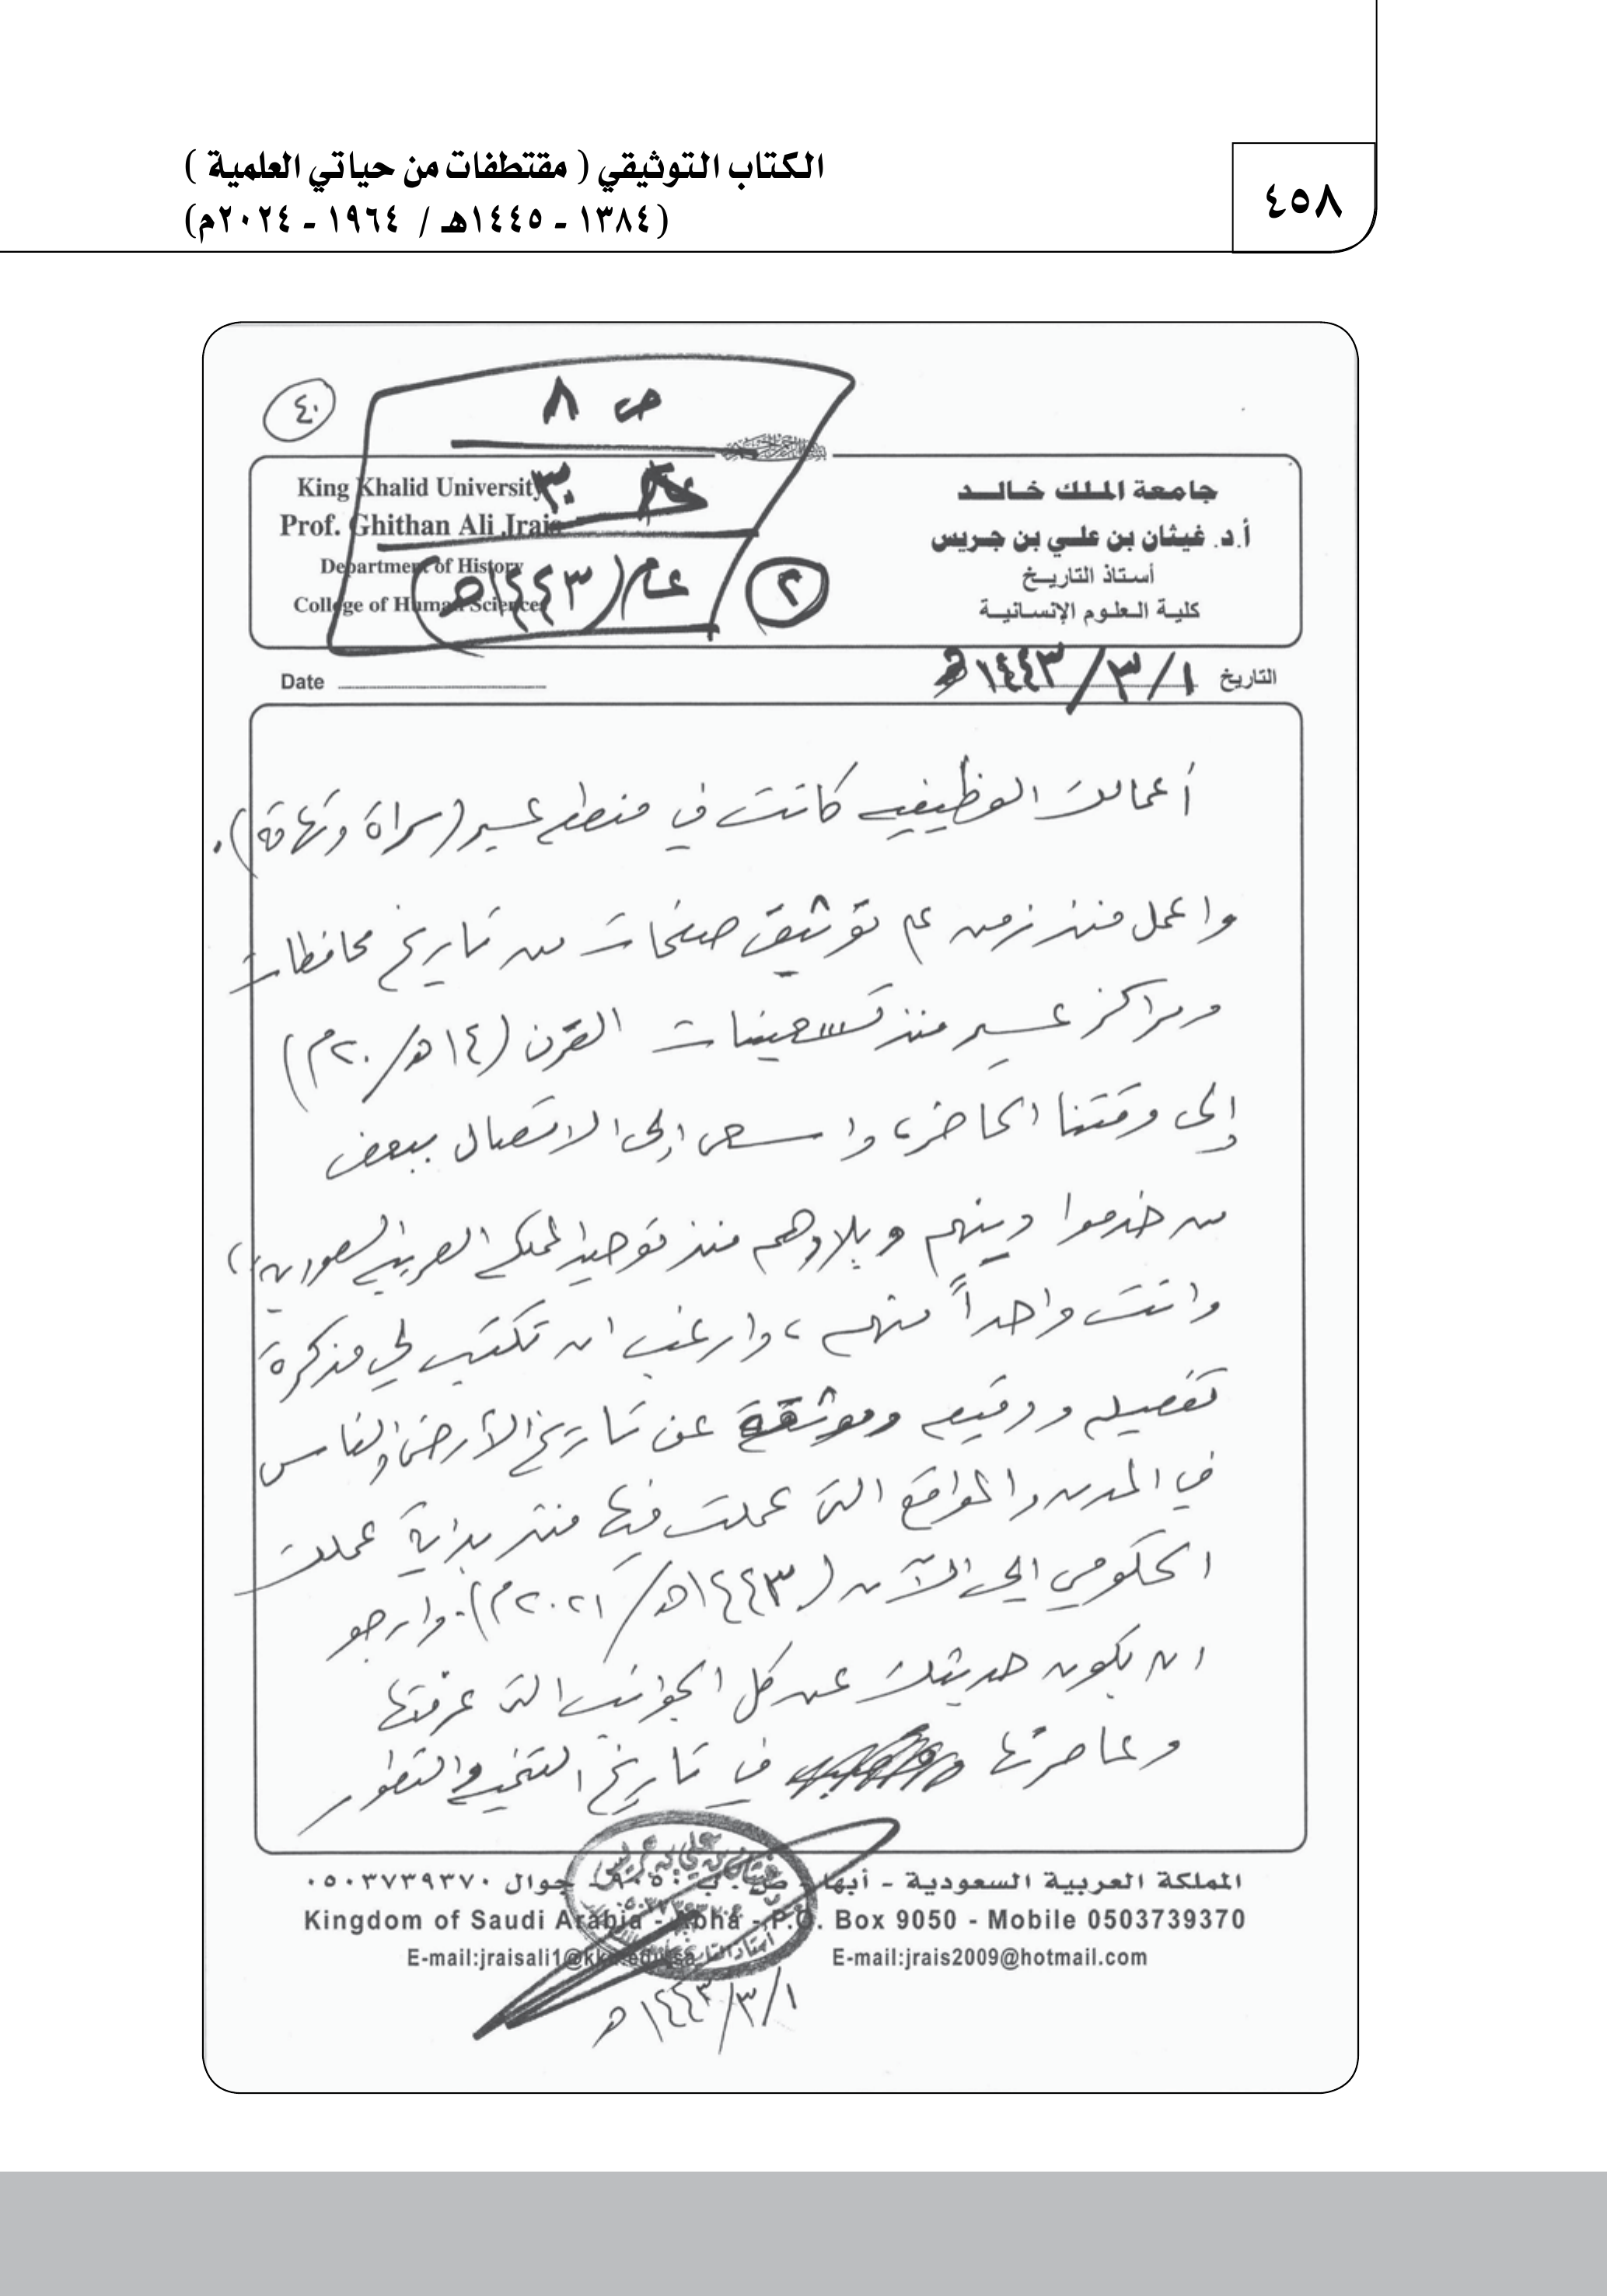 الكتاب التوثيقي ( مقتطفات من حياتي العلمية )
(١٣٨٤ - ١٤٤٥هـ / ١٩٦٤ - ٢٠٢٤م)
٤٥٨
٤٠
ص ٨
٣٠
عام (١٤٤٣هـ)
٢
جامعة الملك خالد
أ.د. غيثان بن علي بن جريس
أستاذ التاريخ
كلية العلوم الإنسانية
King Khalid University
Prof. Ghithan Ali Jrais
Department of History
College of Human Sciences
التاريخ ١/٣/١٤٤٣هـ
Date
أعمالك الوظيفية كانت في منطقة عسير (سراة وتهامة).
واعمل منذ زمن على توثيق صفحات من تاريخ محافظات
ومراكز عسير منذ تسعينيات القرن (١٤هـ/٢٠م)
إلى وقتنا الحاضر، واسعى إلى الاتصال ببعض
من خدموا دينهم وبلادهم منذ توحيد المملكة العربية السعودية،
وانت واحداً منهم، وارغب ان تكتب لي مذكرة
تفصيلية ودقيقة وموثقة عن تاريخ الأرض والناس
في المدن والمواقع التي عملت فيها منذ بداية عملك
الحكومي إلى الآن (١٤٤٣هـ/٢٠٢١م). وارجو
ان يكون حديثك عن كل الجوانب التي عرفتها
وعاصرتها في تاريخ التنمية والتطور
المملكة العربية السعودية - أبها - ص . ب ٩٠٥٠ - جوال ٠٥٠٣٧٣٩٣٧٠
Kingdom of Saudi Arabia - Abha - P.O. Box 9050 - Mobile 0503739370
E-mail:jraisali1@kku.edu.sa E-mail:jrais2009@hotmail.com
١/٣/١٤٤٣هـ